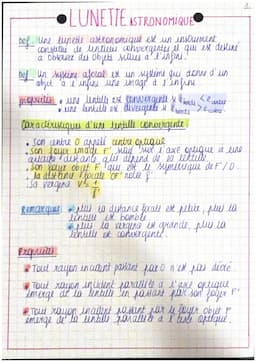 1.
LUNETTE ASTRONOMIQUE
Def Une lunette astronomique est un instrument
constitué de lentilles convergentes et qui est destiné
à observer des objets situés à l'infini.
Def Un système afocal est un système qui donne d'un
objet à l'infini une image à l'infini
propriétés • une lentille est convergente si
• une lentille est divergente si
Caractéristiques d'une lentille convergente
• Son centre O appelé centre optique
• Son foyer image F' situé sur l'axe optique à une
certaine distance qui dépend de la lentille.
• Son foyer objet F qui est le symétrique de F'/O.
• la distance focale OF' notée f'
• Sa vergence V = 1/f'
Remarques • plus la distance focale est petite, plus la
lentille est bombée
• plus la vergence est grande, plus la
lentille est convergente.
Propriétés
• Tout rayon incident passant par O n'est pas dévié.
• Tout rayon incident parallèle à l'axe optique
émerge de la lentille en passant par son foyer F'.
• Tout rayon incident passant par le foyer objet F
émerge de la lentille parallèle à l'axe optique.